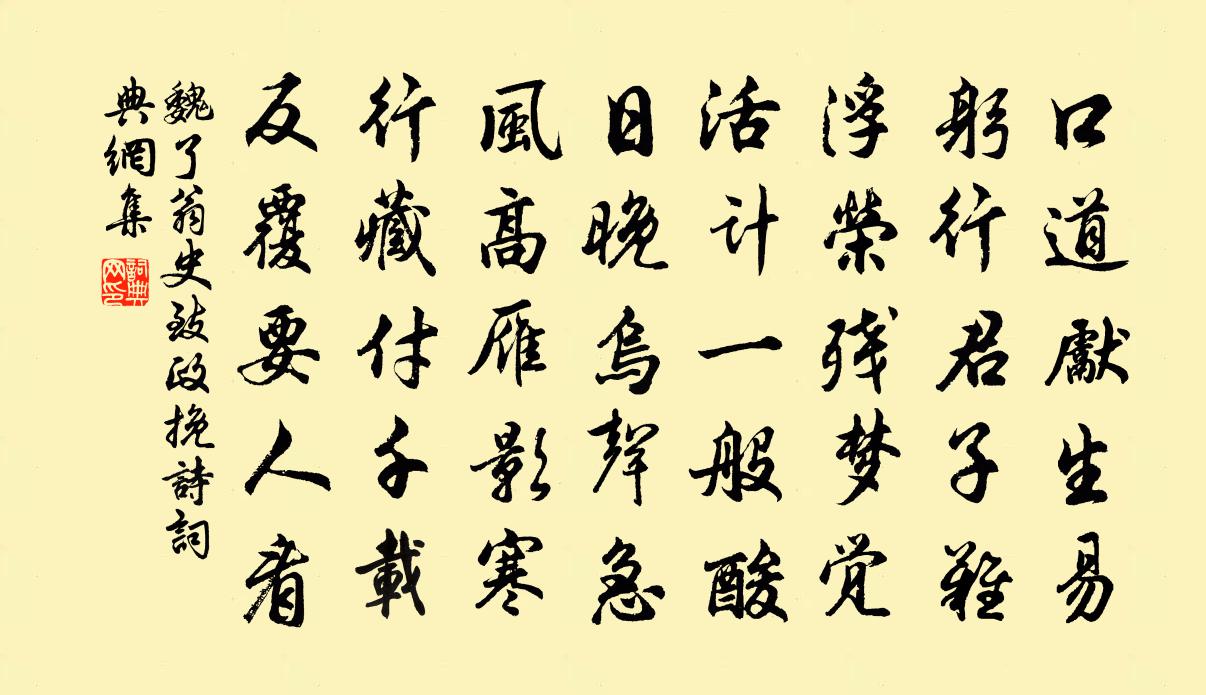 口道獻生易
躬行君子難
浮榮残梦觉
活计一般酸
日晚烏聲急
風高雁影寒
行藏付千載
反覆要人看
魏了翁史致政挽詩詞
典網集
詞典
网印